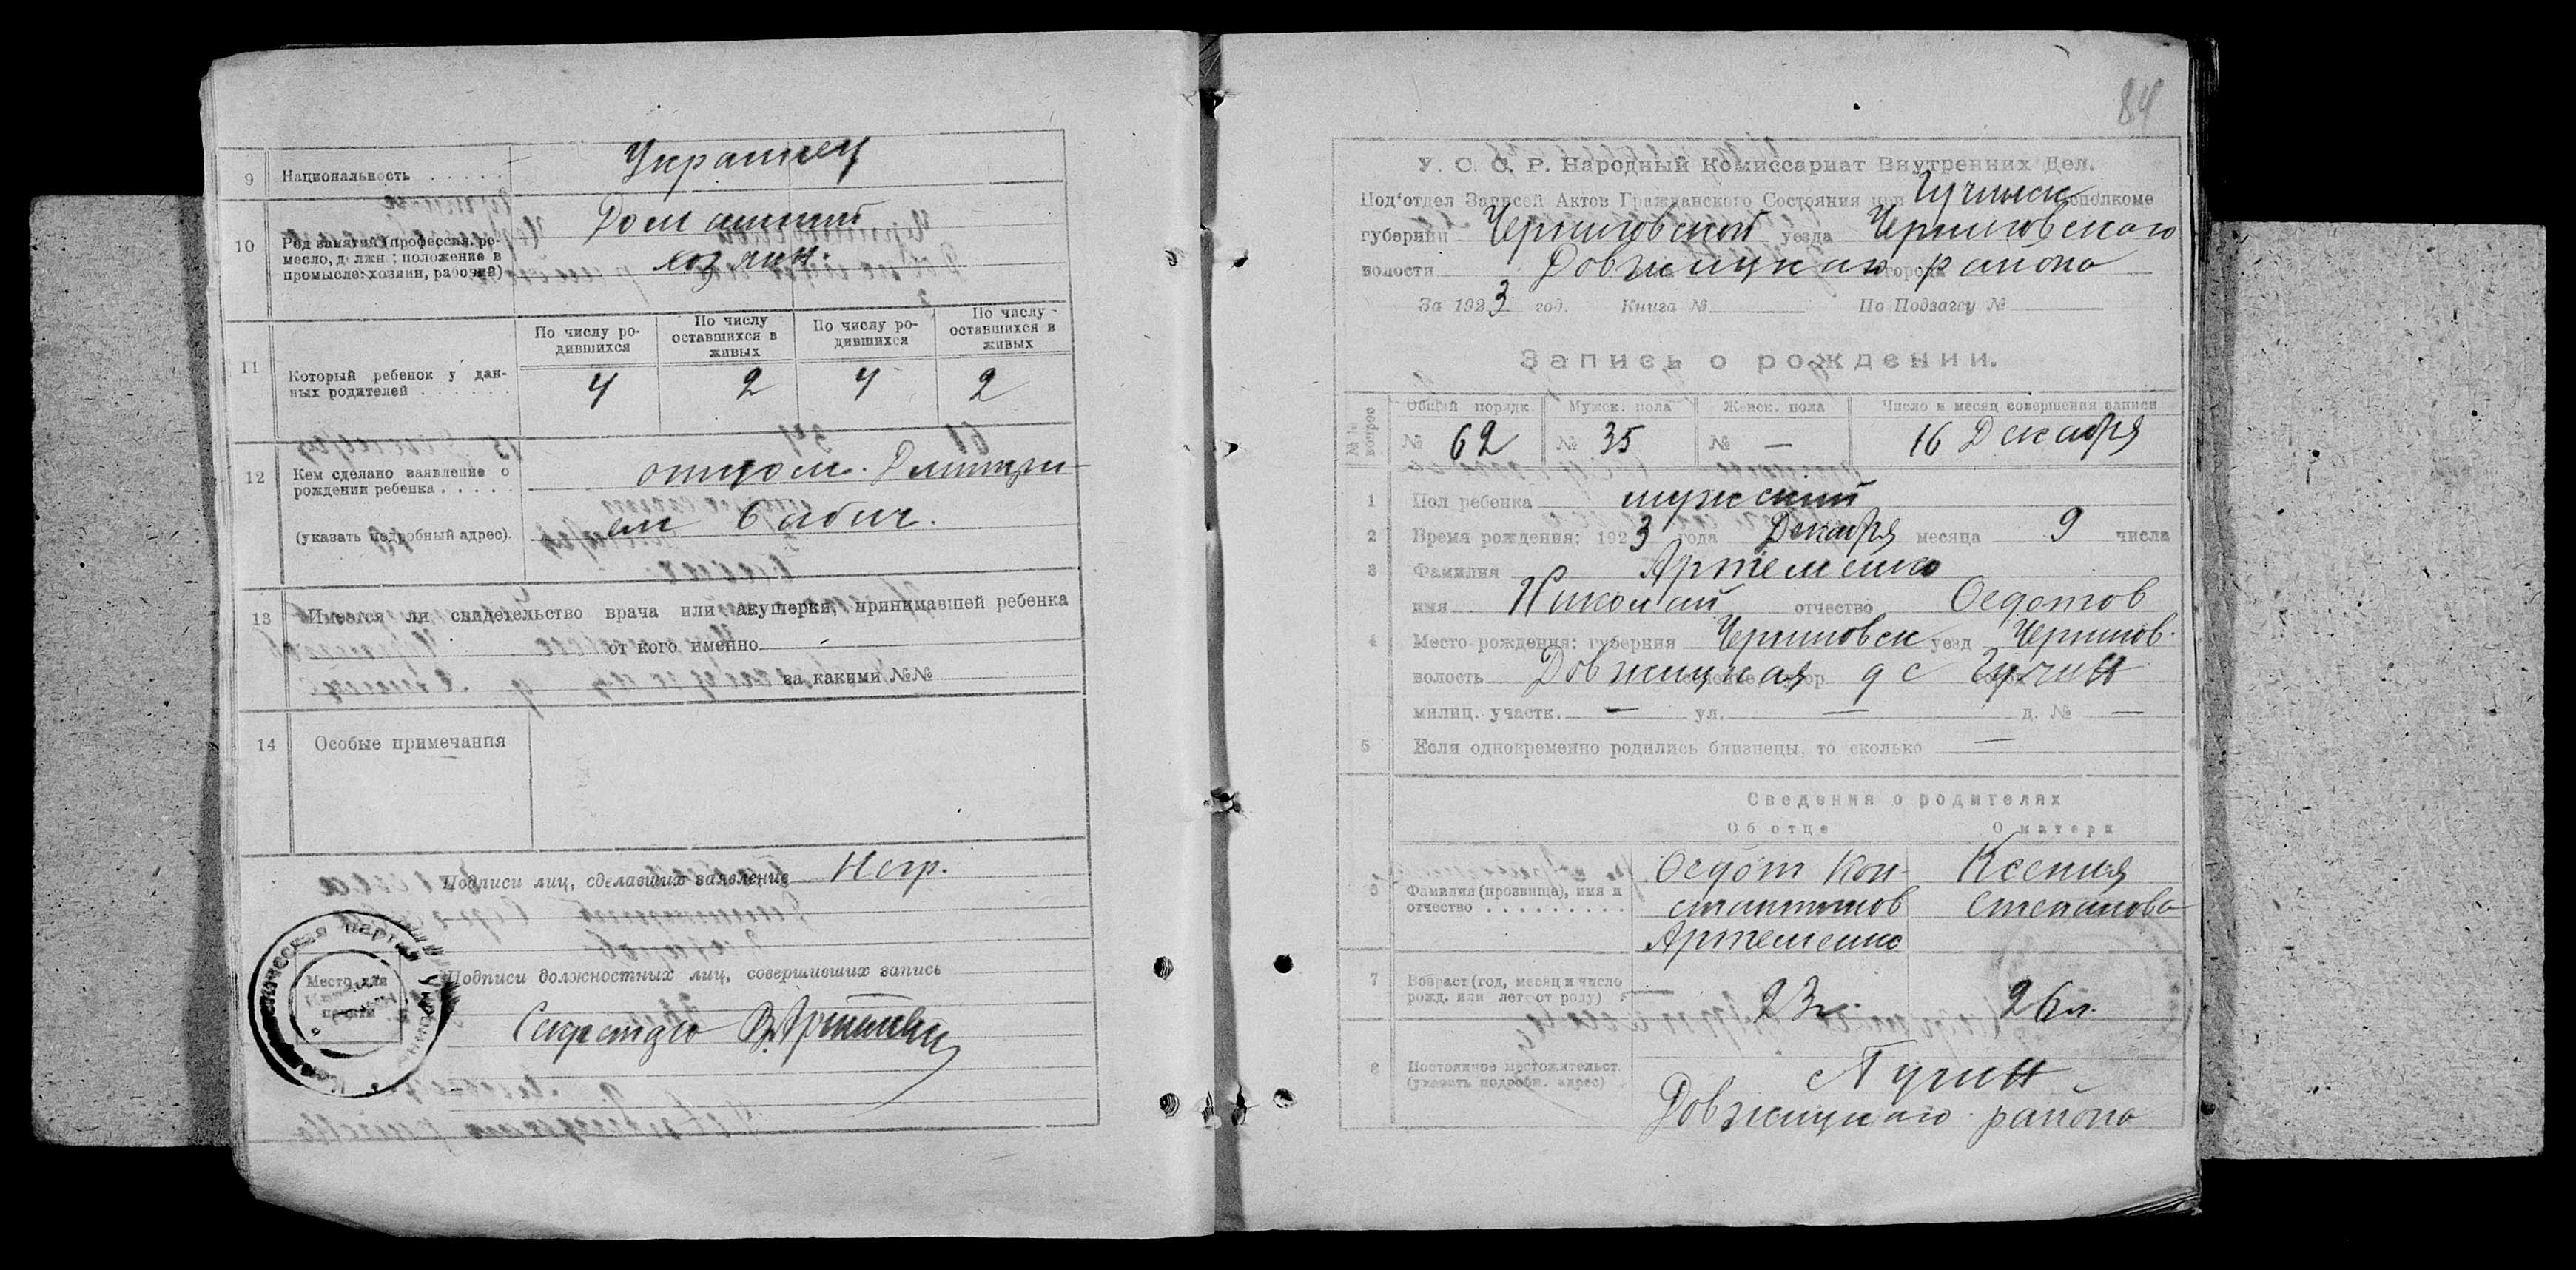 9 Национальность . . . . . Украинец
10 Род занятий (профессия, ре-
месло, должн.; положение в
промысле: хозяин, рабочий)
Домашний
хозяин.
11 Который ребенок у дан-
ных родителей . . . . . .
По числу ро-
дившихся
По числу
оставшихся в
живых
По числу ро-
дившихся
По числу
оставшихся в
живых
4 2 4 2
12 Кем сделано заявление о
рождении ребенка . . . . .
(указать подробный адрес).
отцом. Дмитри-
ем Бабич.
13 Имеется ли свидетельство врача или акушерки, принимавшей ребенка
от кого именно
за какими №№
14 Особые примечания
Подписи лиц, сделавших заявление Негр.
Место для
печати
Подписи должностных лиц, совершивших запись
Секретарь
84
У. С. С. Р. Народный Комиссариат Внутренних Дел.
Под'отдел Записей Актов Гражданского Состояния при Гучинск исполкоме
губернии Черниговской уезда Черниговского
волости Довжицкаго города района
За 1923 год. Книга № По Подзагсу №
Запись о рождении.
№№ вопрос
Общий порядк. Мужск. пола Женск. пола Число и месяц совершения записи
№ 62 № 35 № — 16 Декабря
1 Пол ребенка мужский
2 Время рождения: 1923 года Декабря месяца 9 числа
3 Фамилия Артеменко
имя Николай отчество Федотов
4 Место рождения: губерния Черниговск уезд Чернигов.
волость Довжицкая с Гучин
милиц. участк. — ул. — д. № —
5 Если одновременно родились близнецы, то сколько —
Сведения о родителях
Об отце О матери
6 Фамилия (прозвища), имя и
отчество . . . . . . . . .
Федот Кон-
стантинов
Артеменко
Ксения
Степанова
7 Возраст (год, месяц и число
рожд. или лет от роду)
23 г. 26 л.
8 Постоянное местожительст.
(указать подробн. адрес)
с Гучин
Довжицкаго района